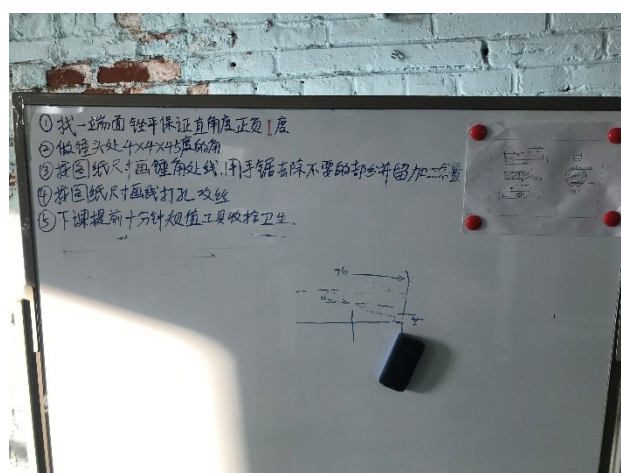 ①找一端面锉平保证直角度正负1度
②做锤头处4×4×45度的角
③按图纸尺寸画锤角处线,用手锯去除不要的部分并留加工余量
④按图纸尺寸画线打孔攻丝
⑤下课提前十分钟规值工具收拾卫生.